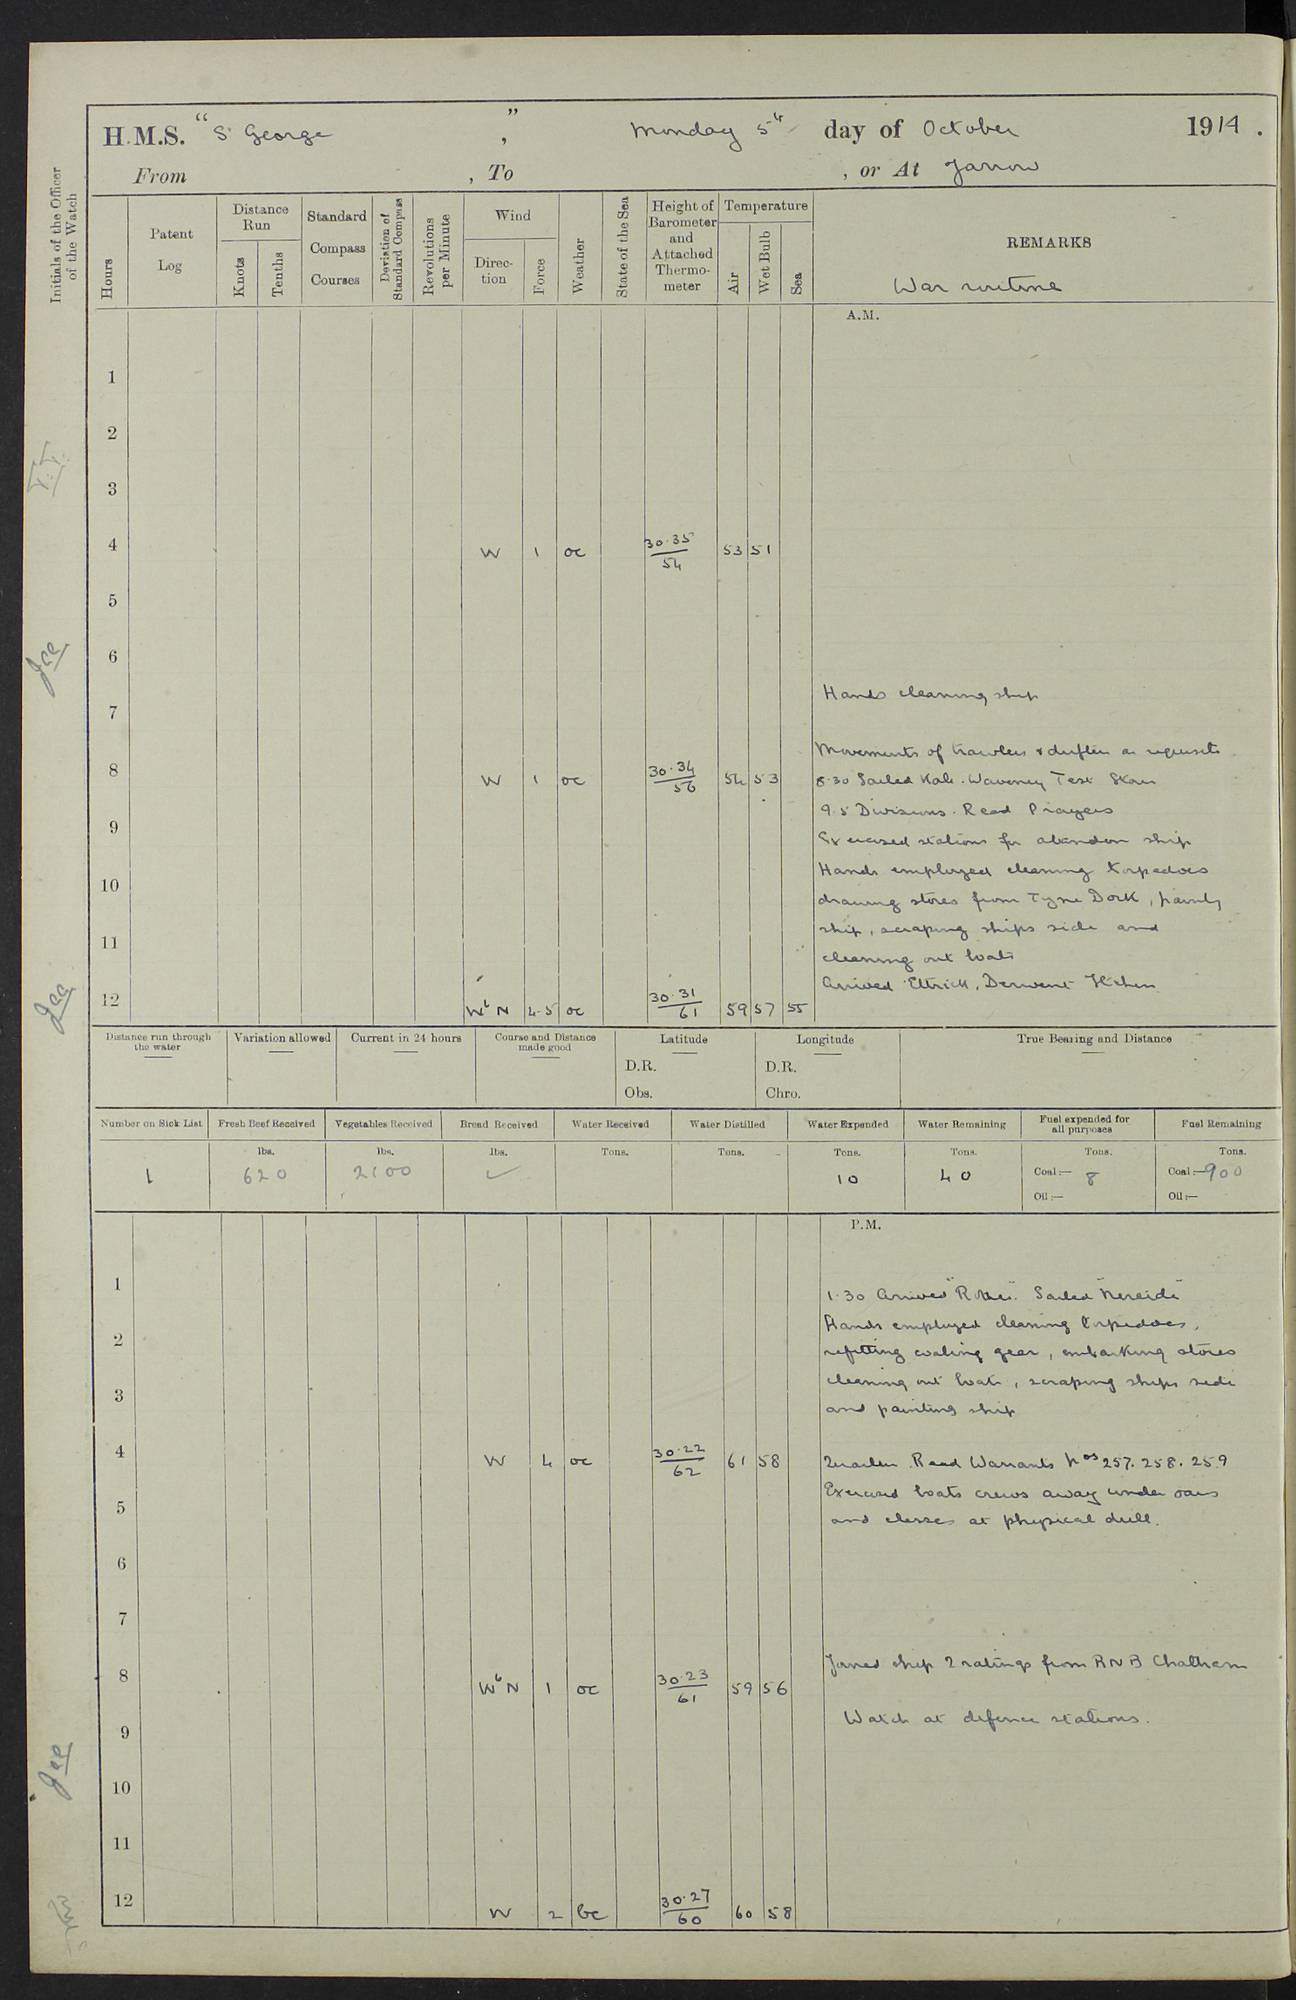 H.M.S. "St George", Monday 5th day of October 1914.
From , To , or At Jarrow
Initials of the Officer of the Watch
Hours
Patent Log
Distance Run
Knots
Tenths
Standard Compass Courses
Deviation of Standard Compass
Revolutions per Minute
Wind
Direction
Force
Weather
State of the Sea
Height of Barometer and Attached Thermometer
Temperature
Air
Wet Bulb
Sea
REMARKS
War routine
A.M.
1
2
3
4 W 1 oc 30.35/54 53 51
5
6
Hands cleaning ship
7
Movements of trawlers & drifters as requisite
8 W 1 oc 30.34/56 54 53
8.30 Sailed Kale. Waveney Test Stour
9.5 Divisions. Read Prayers
9
Exercised stations for abandon ship
Hands employed cleaning torpedoes
10
drawing stores from Tyne Dock, paintg
ship, scraping ships side and
11
cleaning out boats
Arrived Ettrick, Derwent Itchen
12 WbN 4.5 oc 30.31/61 59 57 55
Distance run through the water
Variation allowed
Current in 24 hours
Course and Distance made good
Latitude
D.R.
Obs.
Longitude
D.R.
Chro.
True Bearing and Distance
Number on Sick List
Fresh Beef Received
Vegetables Received
Bread Received
Water Received
Water Distilled
Water Expended
Water Remaining
Fuel expended for all purposes
Fuel Remaining
lbs. lbs. lbs. Tons. Tons. Tons. Tons. Tons. Tons.
1 620 2100 ✓ 10 40 Coal:— 8 Coal:—900
Oil:— Oil:—
P.M.
1
1.30 Arrived "Rother". Sailed "Nereide"
Hands employed cleaning torpedoes,
2
refitting coaling gear, embarking stores
cleaning out boats, scraping ships side
3
and painting ship
4 W 4 oc 30.22/62 61 58
Quarters. Read Warrants Nos 257. 258. 259
Exercised boats crews away under oars
5
and classes at physical drill.
6
7
Joined ship 2 ratings from RNB Chatham
8 WbN 1 oc 30.23/61 59 56
Watch at defence stations.
9
10
11
12 W 2 bc 30.27/60 60 58